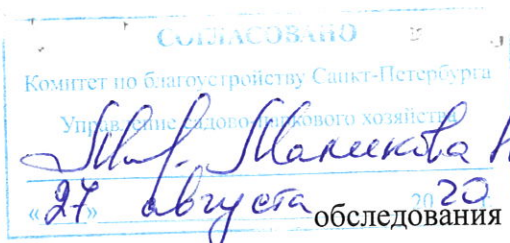 СОГЛАСОВАНО
Комитет по благоустройству Санкт-Петербурга
Управление садово-паркового хозяйства
Маникова
«27» августа 2020 г.
обследования